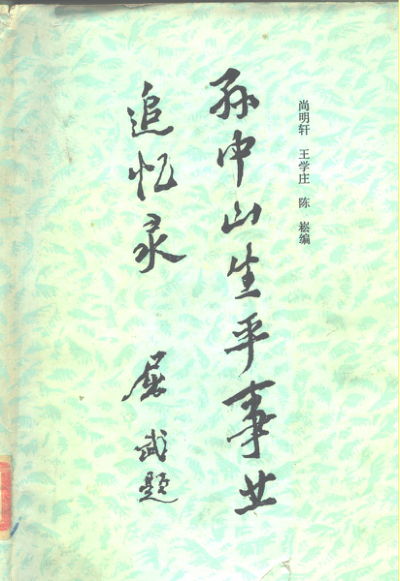 尚明轩 王学庄 陈 崧编
孙中山生平事业
追忆录
屈武题